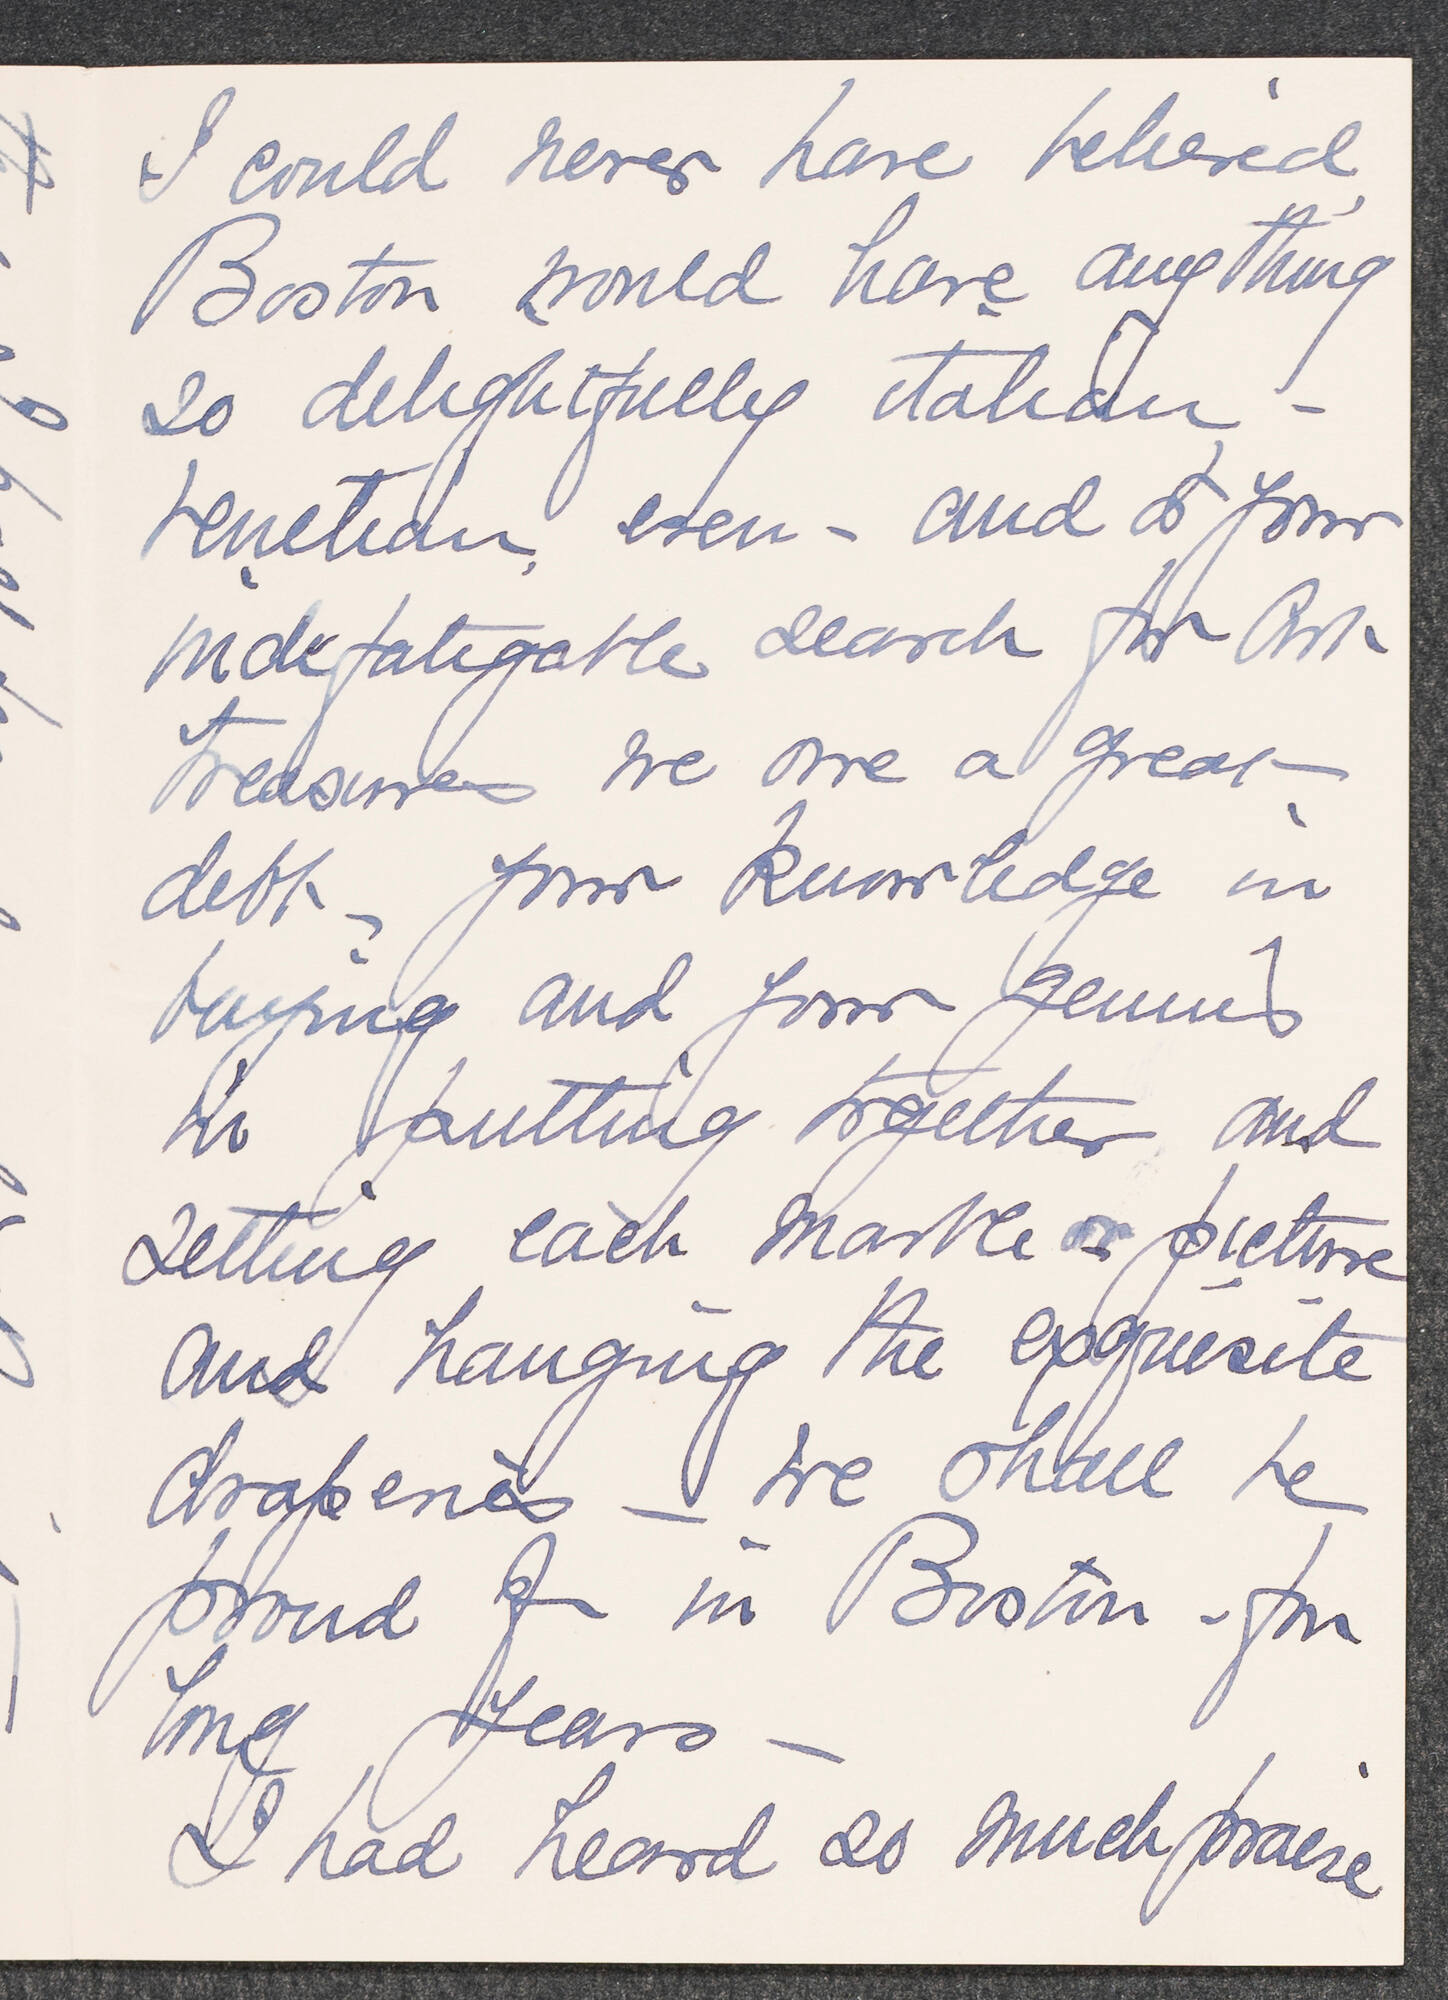 I could never have believed
Boston would have anything
so delightfully italian -
venetian, even - and to your
indefatigable search for Art
treasures we owe a great
debt - your knowledge in
buying and your genius
in putting together and
setting each marble or picture
and hanging the exquisite
draperies - we shall be
proud of in Boston - for
long years -
I had heard so much praise